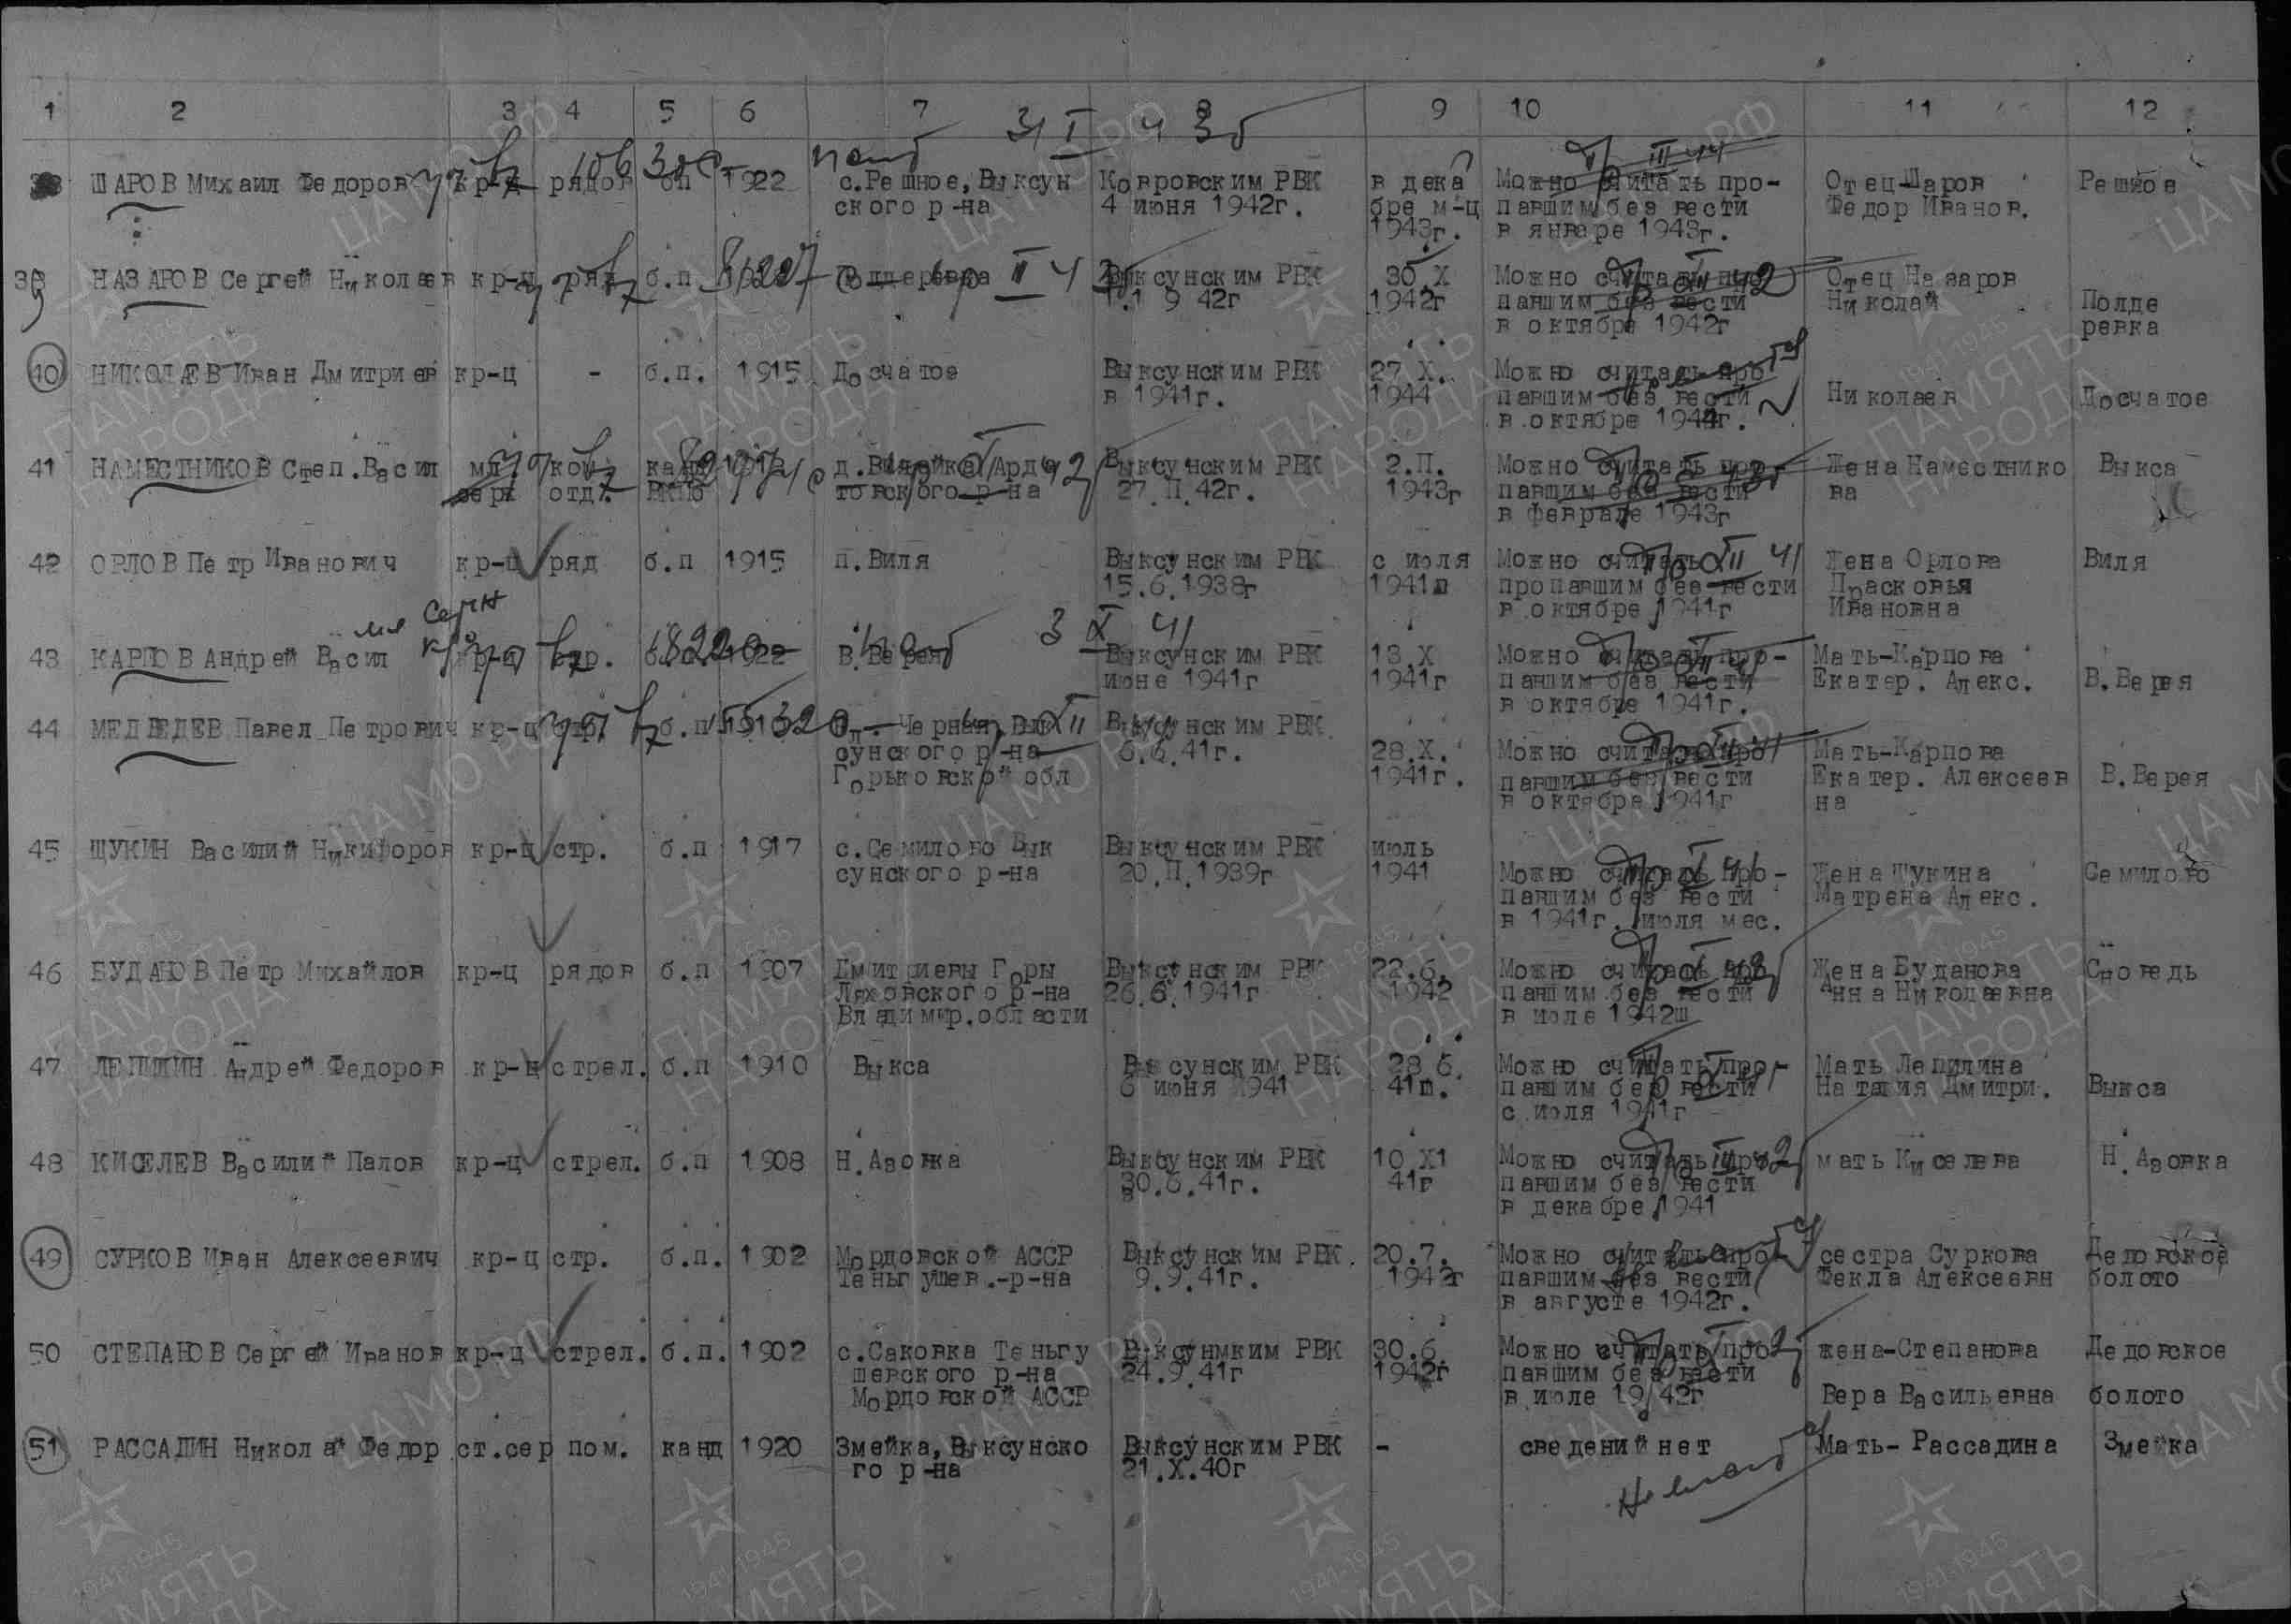 1 2 3 4 5 6 7 8 9 10 11 12
ШАРОВ Михаил Федоров кр-ц рядов бп 1922 с.Решное, Выксун Ковровским РВК в дека Можно считать про- Отец-Шаров Решное
ского р-на 4 июня 1942г. бре м-ц павшим без вести Федор Иванов.
1943г. в январе 1943г.
39 НАЗАРОВ Сергей Николаев кр-ц ряд б.п Выксунским РВК 30.X Можно считать про Отец Назаров
1.1 9 42г 1942г павшим без вести Николай Полде
в октябре 1942г ревка
40 НИКОЛАЕВ Иван Дмитриев кр-ц - б.п. 1915 Досчатое Выксунским РВК 27 X. Можно считать про
в 1941г. 1944 павшим без вести Николаев Досчатое
в октябре 1944г.
41 НАМЕСТНИКОВ Степ.Васил мл ком канд д. Вилейка Ардо Выксунским РВК 2.П. Можно считать про Жена Наместнико Выкса
серж отд. ВКПб товского р-на 27.П.42г. 1943г павшим без вести ва
в феврале 1943г
42 ОРЛОВ Петр Иванович кр-ц ряд б.п 1915 п.Виля Выксунским РВК с июля Можно считать Жена Орлова Виля
15.6.1938г 1941ш пропавшим без вести Прасковья
в октябре 1941г Ивановна
43 КАРПОВ Андрей Васил кр-ц стр. б.п. 1922 В.Верея Выксунским РВК 13.X Можно считать про- Мать-Карпова
июне 1941г 1941г павшим без вести Екатер. Алекс. В.Верея
в октябре 1941г.
44 МЕДВЕДЕВ Павел Петрович кр-ц стр б.п Черная, Вык Выксунским РВК
сунского р-на 6.6.41г. 28.X. Можно считать про Мать-Карпова
Горьковской обл 1941г. павшим без вести Екатер. Алексеев В.Верея
в октябре 1941г на
45 ЩУКИН Василий Никифоров кр-ц стр. б.п 1917 с.Семилово Вык Выксунским РВК июль
сунского р-на 20.П.1939г 1941 Можно считать про- Жена Щукина Семилово
павшим без вести Матрена Алекс.
в 1941г. июля мес.
46 БУДАНОВ Петр Михайлов кр-ц рядов б.п 1907 Дмитриевы Горы Выксунским РВК 22.6. Можно считать про Жена Буданова Сноведь
Ляховского р-на 26.6.1941г 1942 павшим без вести Анна Николаевна
Владимир.области в июле 1942ш
47 ЛЕПИЛИН Андрей Федоров кр-ц стрел. б.п 1910 Выкса Выксунским РВК 28.6. Можно считать про- Мать Лепилина
6 июня 1941 41ш. павшим без вести Наталия Дмитри. Выкса
с июля 1941г
48 КИСЕЛЕВ Василий Палов кр-ц стрел. б.п 1908 Н.Азовка Выксунским РВК 10 X1 Можно считать про мать Киселева Н.Азовка
30.6.41г. 41г павшим без вести
в декабре 1941
49 СУРКОВ Иван Алексеевич кр-ц стр. б.п. 1902 Мордовской АССР Выксунским РВК. 20.7. Можно считать про сестра Суркова Дедовское
Теньгушев.-р-на 9.9.41г. 1942г павшим без вести Фекла Алексеевн болото
в августе 1942г.
50 СТЕПАНОВ Сергей Иванов кр-ц стрел. б.п. 1902 с.Саковка Теньгу Выксунмким РВК 30.6. Можно считать про жена-Степанова Дедовское
шевского р-на 24.9.41г 1942г павшим без вести
Мордовской АССР в июле 1942г Вера Васильевна болото
51 РАССАДИН Николай Федор ст.сер пом. канд 1920 Змейка, Выксунско Выксунским РВК - сведений нет Мать- Рассадина Змейка
го р-на 21.X.40г